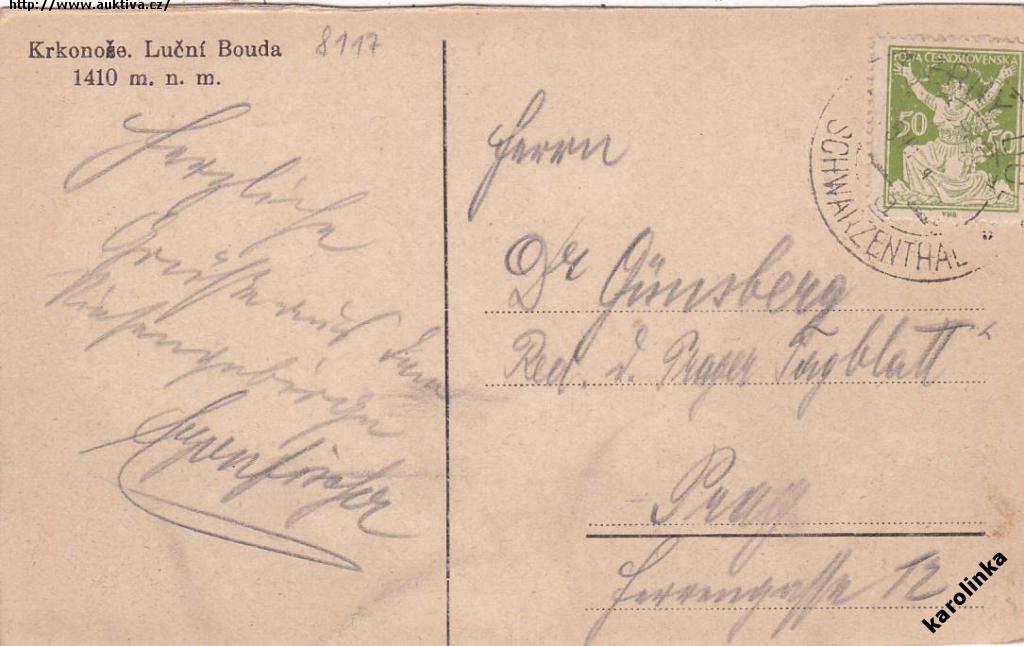 http://www.auktiva.cz/
Krkonoše. Luční Bouda
1410 m. n. m.
8117
Herzliche
Grüsse aus dem
Riesengebirge
POŠTA ČESKOSLOVENSKÁ
50 50
SCHWARZENTHAL
Herrn
Dr Günsberg
Red. d. Prager Tagblatt"
Prag
Herrengasse 12
karolinka